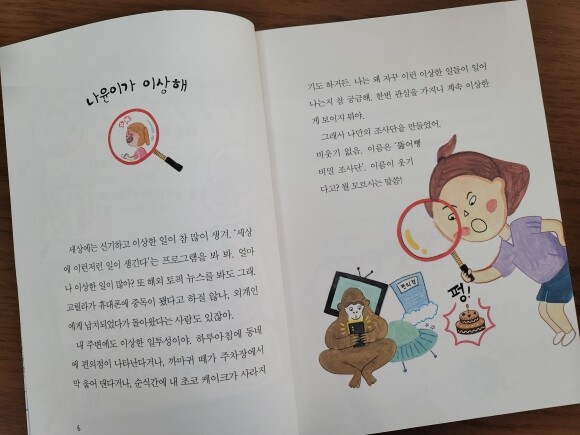 나윤이가 이상해
세상에는 신기하고 이상한 일이 참 많이 생겨. '세상
에 이런저런 일이 생긴다'는 프로그램을 봐 봐. 얼마
나 이상한 일이 많아? 또 해외 토픽 뉴스를 봐도 그래.
고릴라가 휴대폰에 중독이 됐다고 하질 않나, 외계인
에게 납치되었다가 돌아왔다는 사람도 있잖아.
내 주변에도 이상한 일투성이야. 하루아침에 동네
에 편의점이 나타난다거나, 까마귀 떼가 주차장에서
막 울어 댄다거나, 순식간에 내 초코 케이크가 사라지
6
기도 하거든. 나는 왜 자꾸 이런 이상한 일들이 일어
나는지 참 궁금해. 한번 관심을 가지니 계속 이상한
게 보이지 뭐야.
그래서 나만의 조사단을 만들었어.
비웃기 없음. 이름은 '뚫어뻥
비밀 조사단'. 이름이 웃기
다고? 뭘 모르시는 말씀!
편의점
펑!